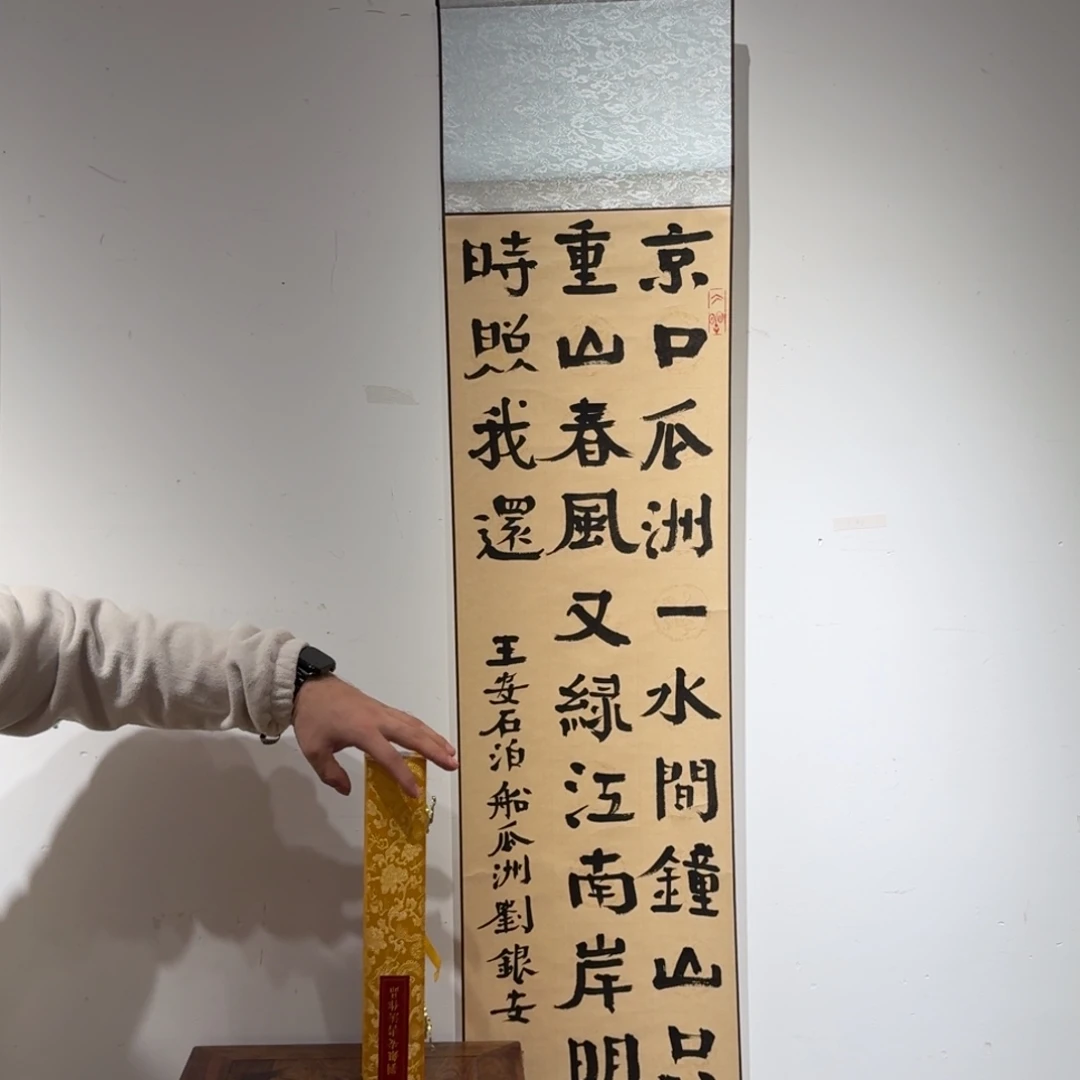 京口瓜洲一水間鐘山只
重山春風又綠江南岸明
時照我還
王安石泊船瓜洲劉銀安
劉銀安書法作品